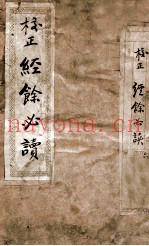 校正經餘必讀
校正 經餘必讀
nayona.cn